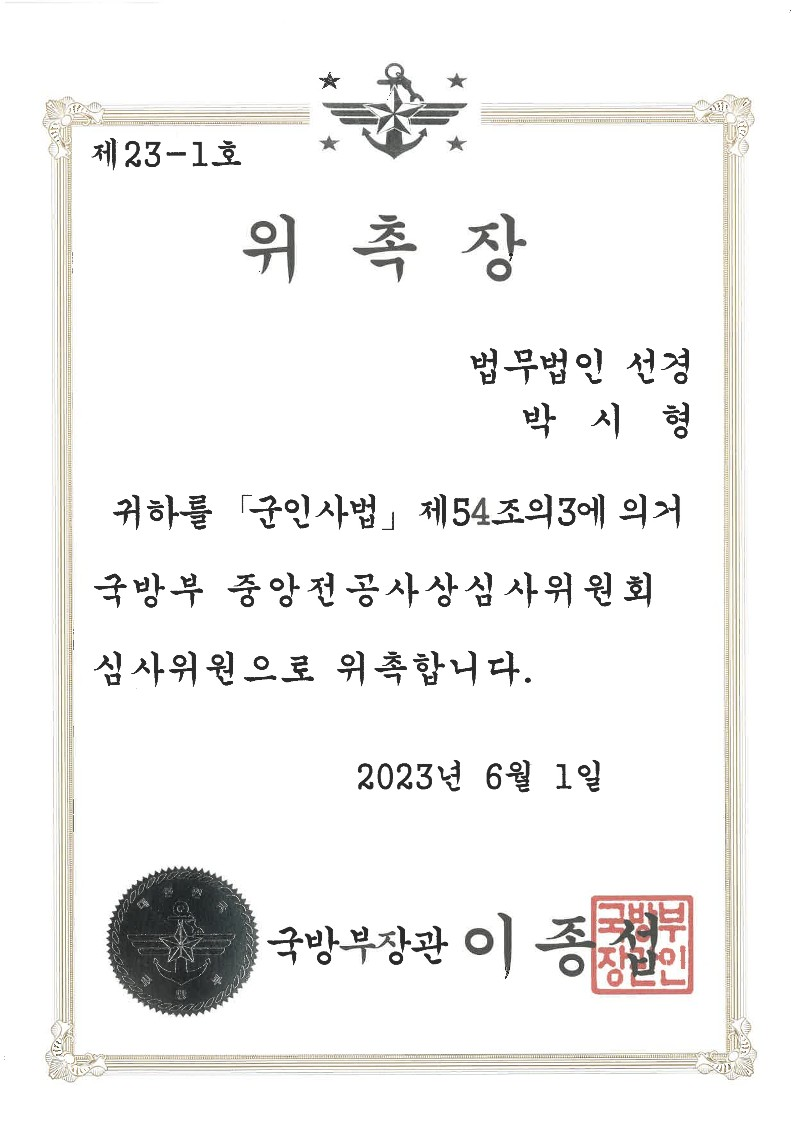 제23-1호
위 촉 장
법무법인 선경
박 시 형
귀하를 「군인사법」 제54조의3에 의거
국방부 중앙전공사상심사위원회
심사위원으로 위촉합니다.
2023년 6월 1일
국방부장관 이 종 섭
국방부
장관인